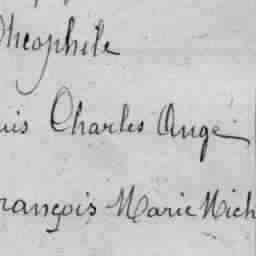 Théophile
uis Charles Ange
rançois Marie Mich